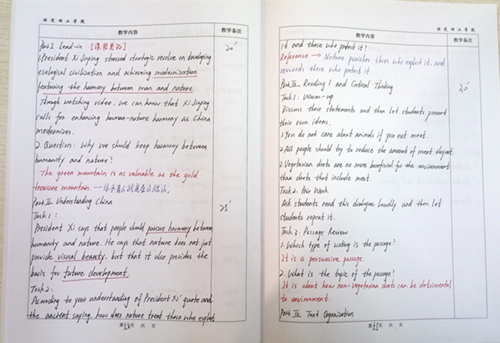 教学内容 教学备注
Part I Lead-in [课程思政] 20'
1. President Xi Jinping stressed strategic resolve on developing
ecological civilization and achieving modernization
featuring the harmony between man and nature.
Through watching video, we can know that Xi Jinping
calls for enhancing human-nature harmony as China
modernizes.
2. Question: Why we should keep harmony between
humanity and nature?
The green mountain is as valuable as the gold
treasure mountain
Part II Understanding China 25'
Task 1:
President Xi says that people should pursue harmony between
humanity and nature. He says that nature does not just
provide visual beauty, but that it also provides the
basis for future development.
Task 2:
According to your understanding of President Xi' quote and
the ancient saying, how does nature treat those who exploit
教学内容 教学备注
it and those who protect it?
Reference: Nature punishes them who exploit it, and
rewards those who protect it
Part III Reading 1 and Critical Thinking 20'
Task 1: Warm-up
Discuss these statements and then let students present
their own ideas.
1. You do not care about animals if you eat meat.
2. All people should try to reduce the amount of meat they eat.
3. Vegetarian diets are no more beneficial for the environment
than diets that include meat.
Task 2: Pair Work
Ask students read this dialogue loudly and then let
students repeat it.
Task 3: Passage Review
1. Which type of writing is the passage?
It is a persuasive passage.
2. What is the topic of the passage?
It is about how non-vegetarian diets can be detrimental
to environment.
Part IV Text Organization